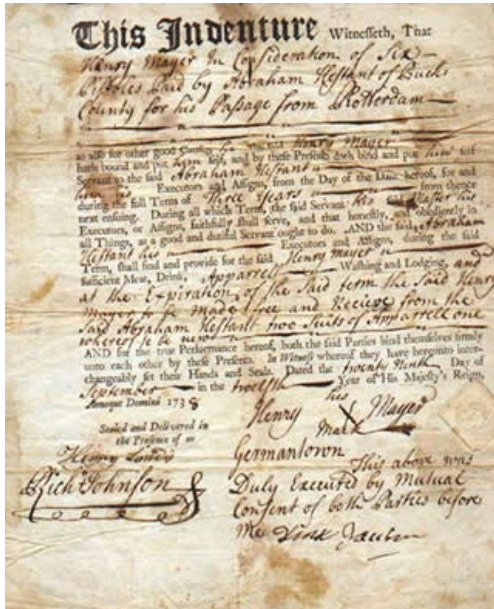 This Indenture Witnesseth, That
Henry Mayer In Consideration of Six
Pistoles Paid by Abraham Hestant of Bucks
County for his Passage from Rotterdam
as also for other good Causes he the said Henry Mayer
hath bound and put him self, and by these Presents doth bind and put him self
Servant to the said Abraham Hestant
Executors and Assigns, from the Day of the Date hereof, for and
during the full Term of Three Years from thence
next ensuing. During all which Term, the said Servant his said Master his
Executors, or Assigns, faithfully shall serve, and that honestly, and obediently in
all Things, as a good and dutiful Servant ought to do. AND the said Abraham
Hestant his Executors and Assigns, during the said
Term, shall find and provide for the said Henry Mayer
sufficient Meat, Drink, Apparrell Washing and Lodging, and
at the Expiration of the said term the said Henry
Mayer to be made free and Receive from the
Said Abraham Hestant two Suits of Apparrell one
whereof to be new
AND for the true Performance hereof, both the said Parties bind themselves firmly
unto each other by these Presents. In Witness whereof they have hereunto inter-
changeably set their Hands and Seals. Dated the twenty Ninth Day of
September in the twelfth Year of His Majesty's Reign,
Annoque Domini 1738
his
Henry X Mayer
Mark
Sealed and Delivered in
the Presence of us
Henry
Rich Johnson
Germantown
This above was
Duly Executed by Mutual
Consent of both Parties before
me